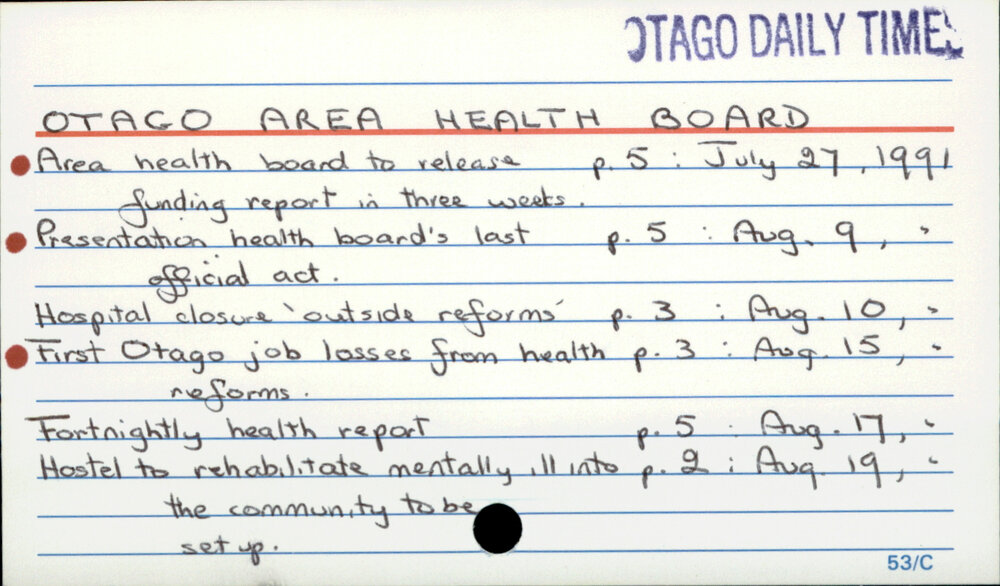 OTAGO DAILY TIMES
OTAGO AREA HEALTH BOARD
Area health board to release p. 5 : July 27, 1991
funding report in three weeks.
Presentation health board's last p. 5 : Aug. 9, "
official act.
Hospital closure 'outside reforms' p. 3 : Aug. 10, "
First Otago job losses from health p. 3 : Aug. 15, "
reforms.
Fortnightly health report p. 5 : Aug. 17, "
Hostel to rehabilitate mentally ill into p. 2 : Aug. 19, "
the community to be
set up.
53/C